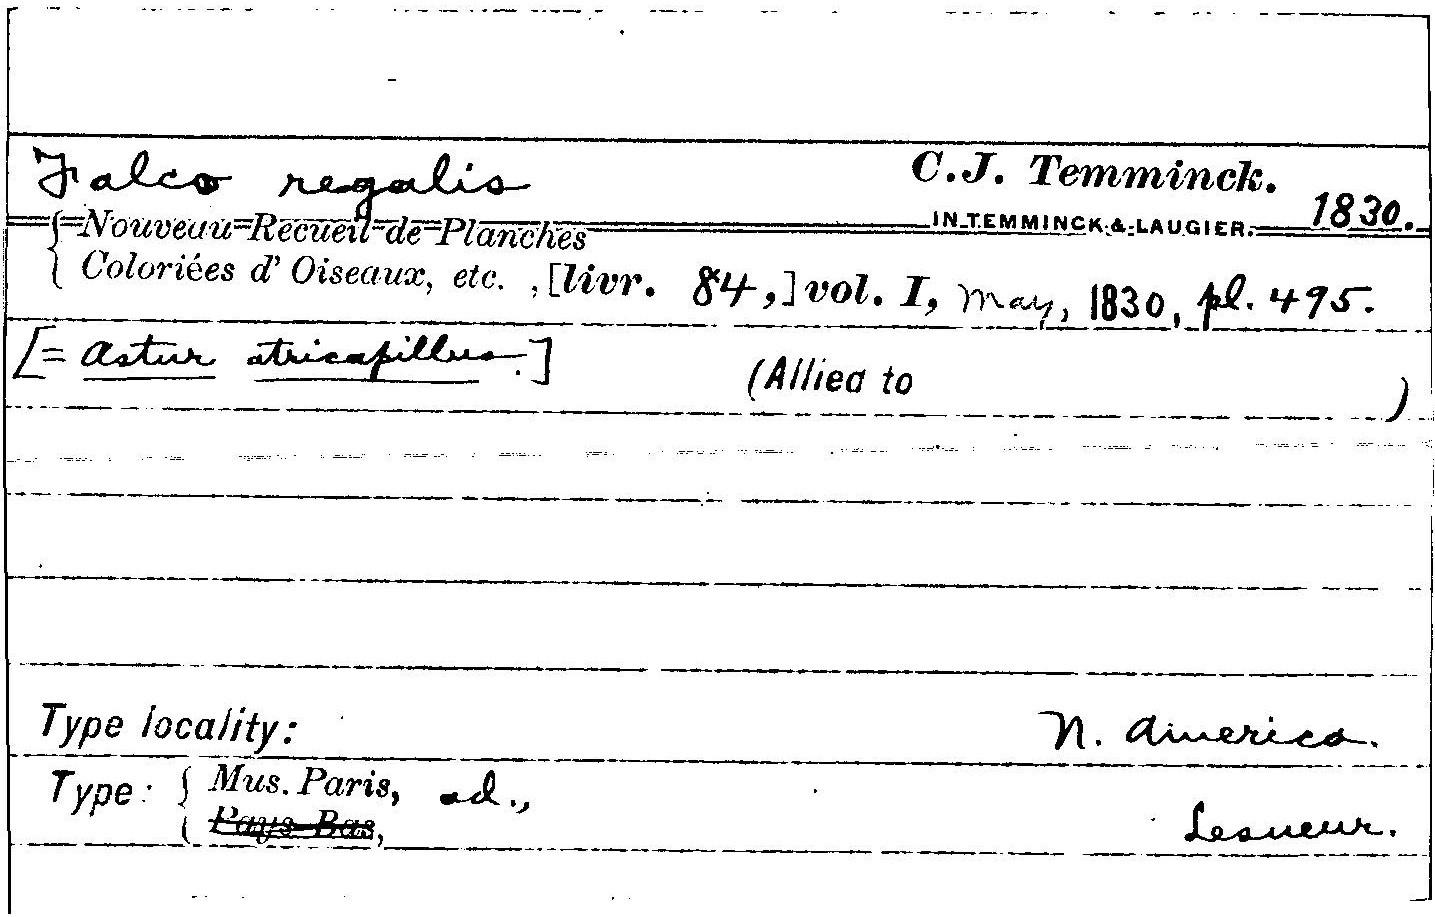 Falco regalis C.J. Temminck.
{ Nouveau Recueil de Planches IN TEMMINCK & LAUGIER. 1830.
{ Coloriées d' Oiseaux, etc. , [livr. 84,] vol. I, May, 1830, pl. 495.
[= Astur atricapillus.] (Allied to )
Type locality: N. America.
Type: { Mus. Paris, ad.,
{ Pays Bas, Lesueur.